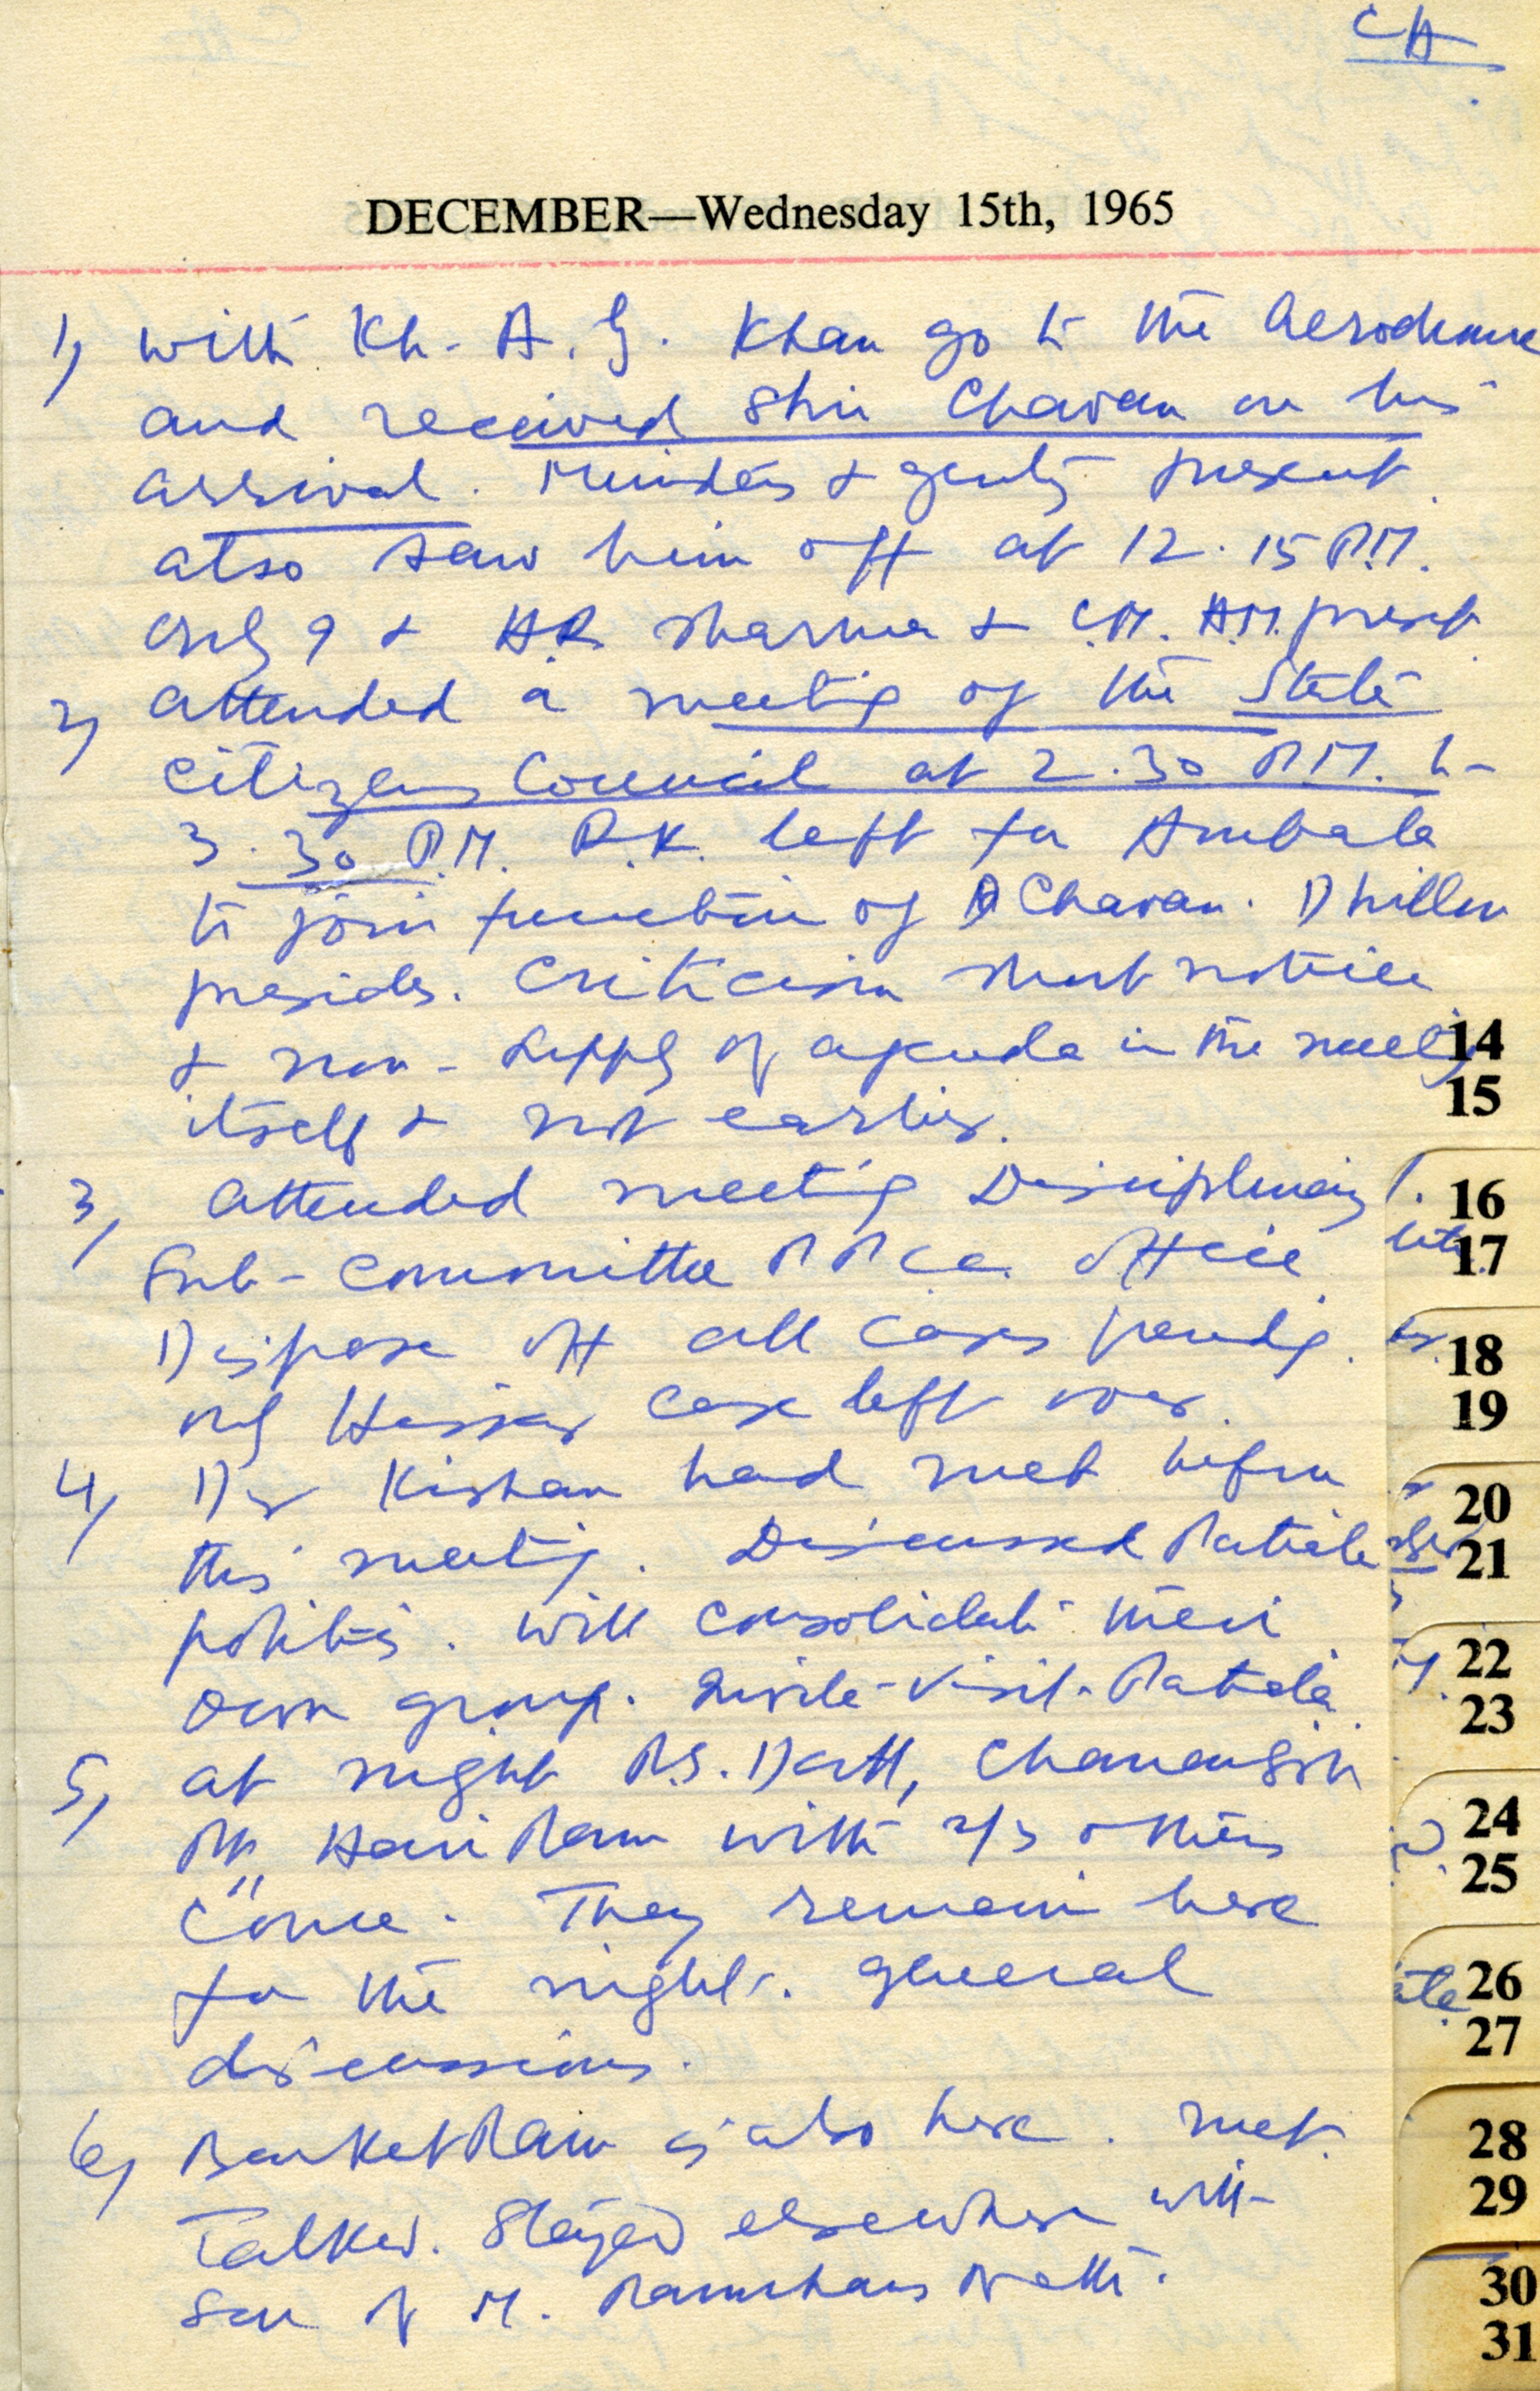 CH
DECEMBER—Wednesday 15th, 1965
1) with Kh. A. G. Khan go to the Aerodrome
and received Shri Chavan on his
arrival. Ministers & gentry present.
also saw him off at 12.15 P.M.
only I & H.R. Sharma & C.M. H.M. present
2) attended a meeting of the State
citizens Council at 2.30 P.M. to
3.30 P.M. R.K. left for Ambala
to join function of Chavan. Dhillon
presides. Criticism short notice
& non-supply of agenda in the meeting
itself & not earlier.
3, attended meeting Disciplinary
Sub-committee P.P.C.C. office
Dispose off all cases pending.
only Hissar case left over.
4, Dr Kishan had met before
this meeting. Discussed Patiala
politics. will consolidate their
own group. Invite-visit-Patiala
5, at night P.S. Datt, Chanan Singh
Pt. Hari Ram with 2/3 others
Come. They remain here
for the night. general
discussions.
6, Banket Ram is also here. met.
Talked. Stayed elsewhere with
son of M. Ramsharn Nath.
14
15
16
17
18
19
20
21
22
23
24
25
26
27
28
29
30
31